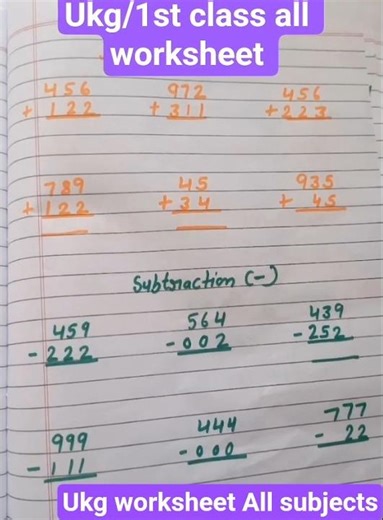 Ukg/1st class all
worksheet
456 972 456
+ 122 + 311 + 223
789 45 935
+ 122 + 34 + 45
Subtraction (-)
459 564 439
- 222 - 002 - 252
999 444 777
- 111 - 000 - 22
Ukg worksheet All subjects